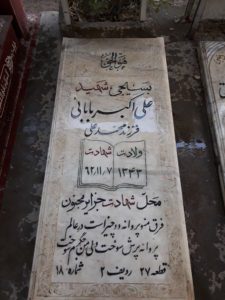 هوالحی
بسیجی شهید
علی اکبر بابائی
فرزند محمدعلی
ولادت شهادت
۱۳۴۳ ۶۲,۱۱,۷
محل شهادت جزایر مجنون
فرق من و پروانه دو چیز است در عالم
پروانه پرش سوخت ولی من جگرم سوخت
قطعه ۲۷ ردیف ۲ شماره ۱۸